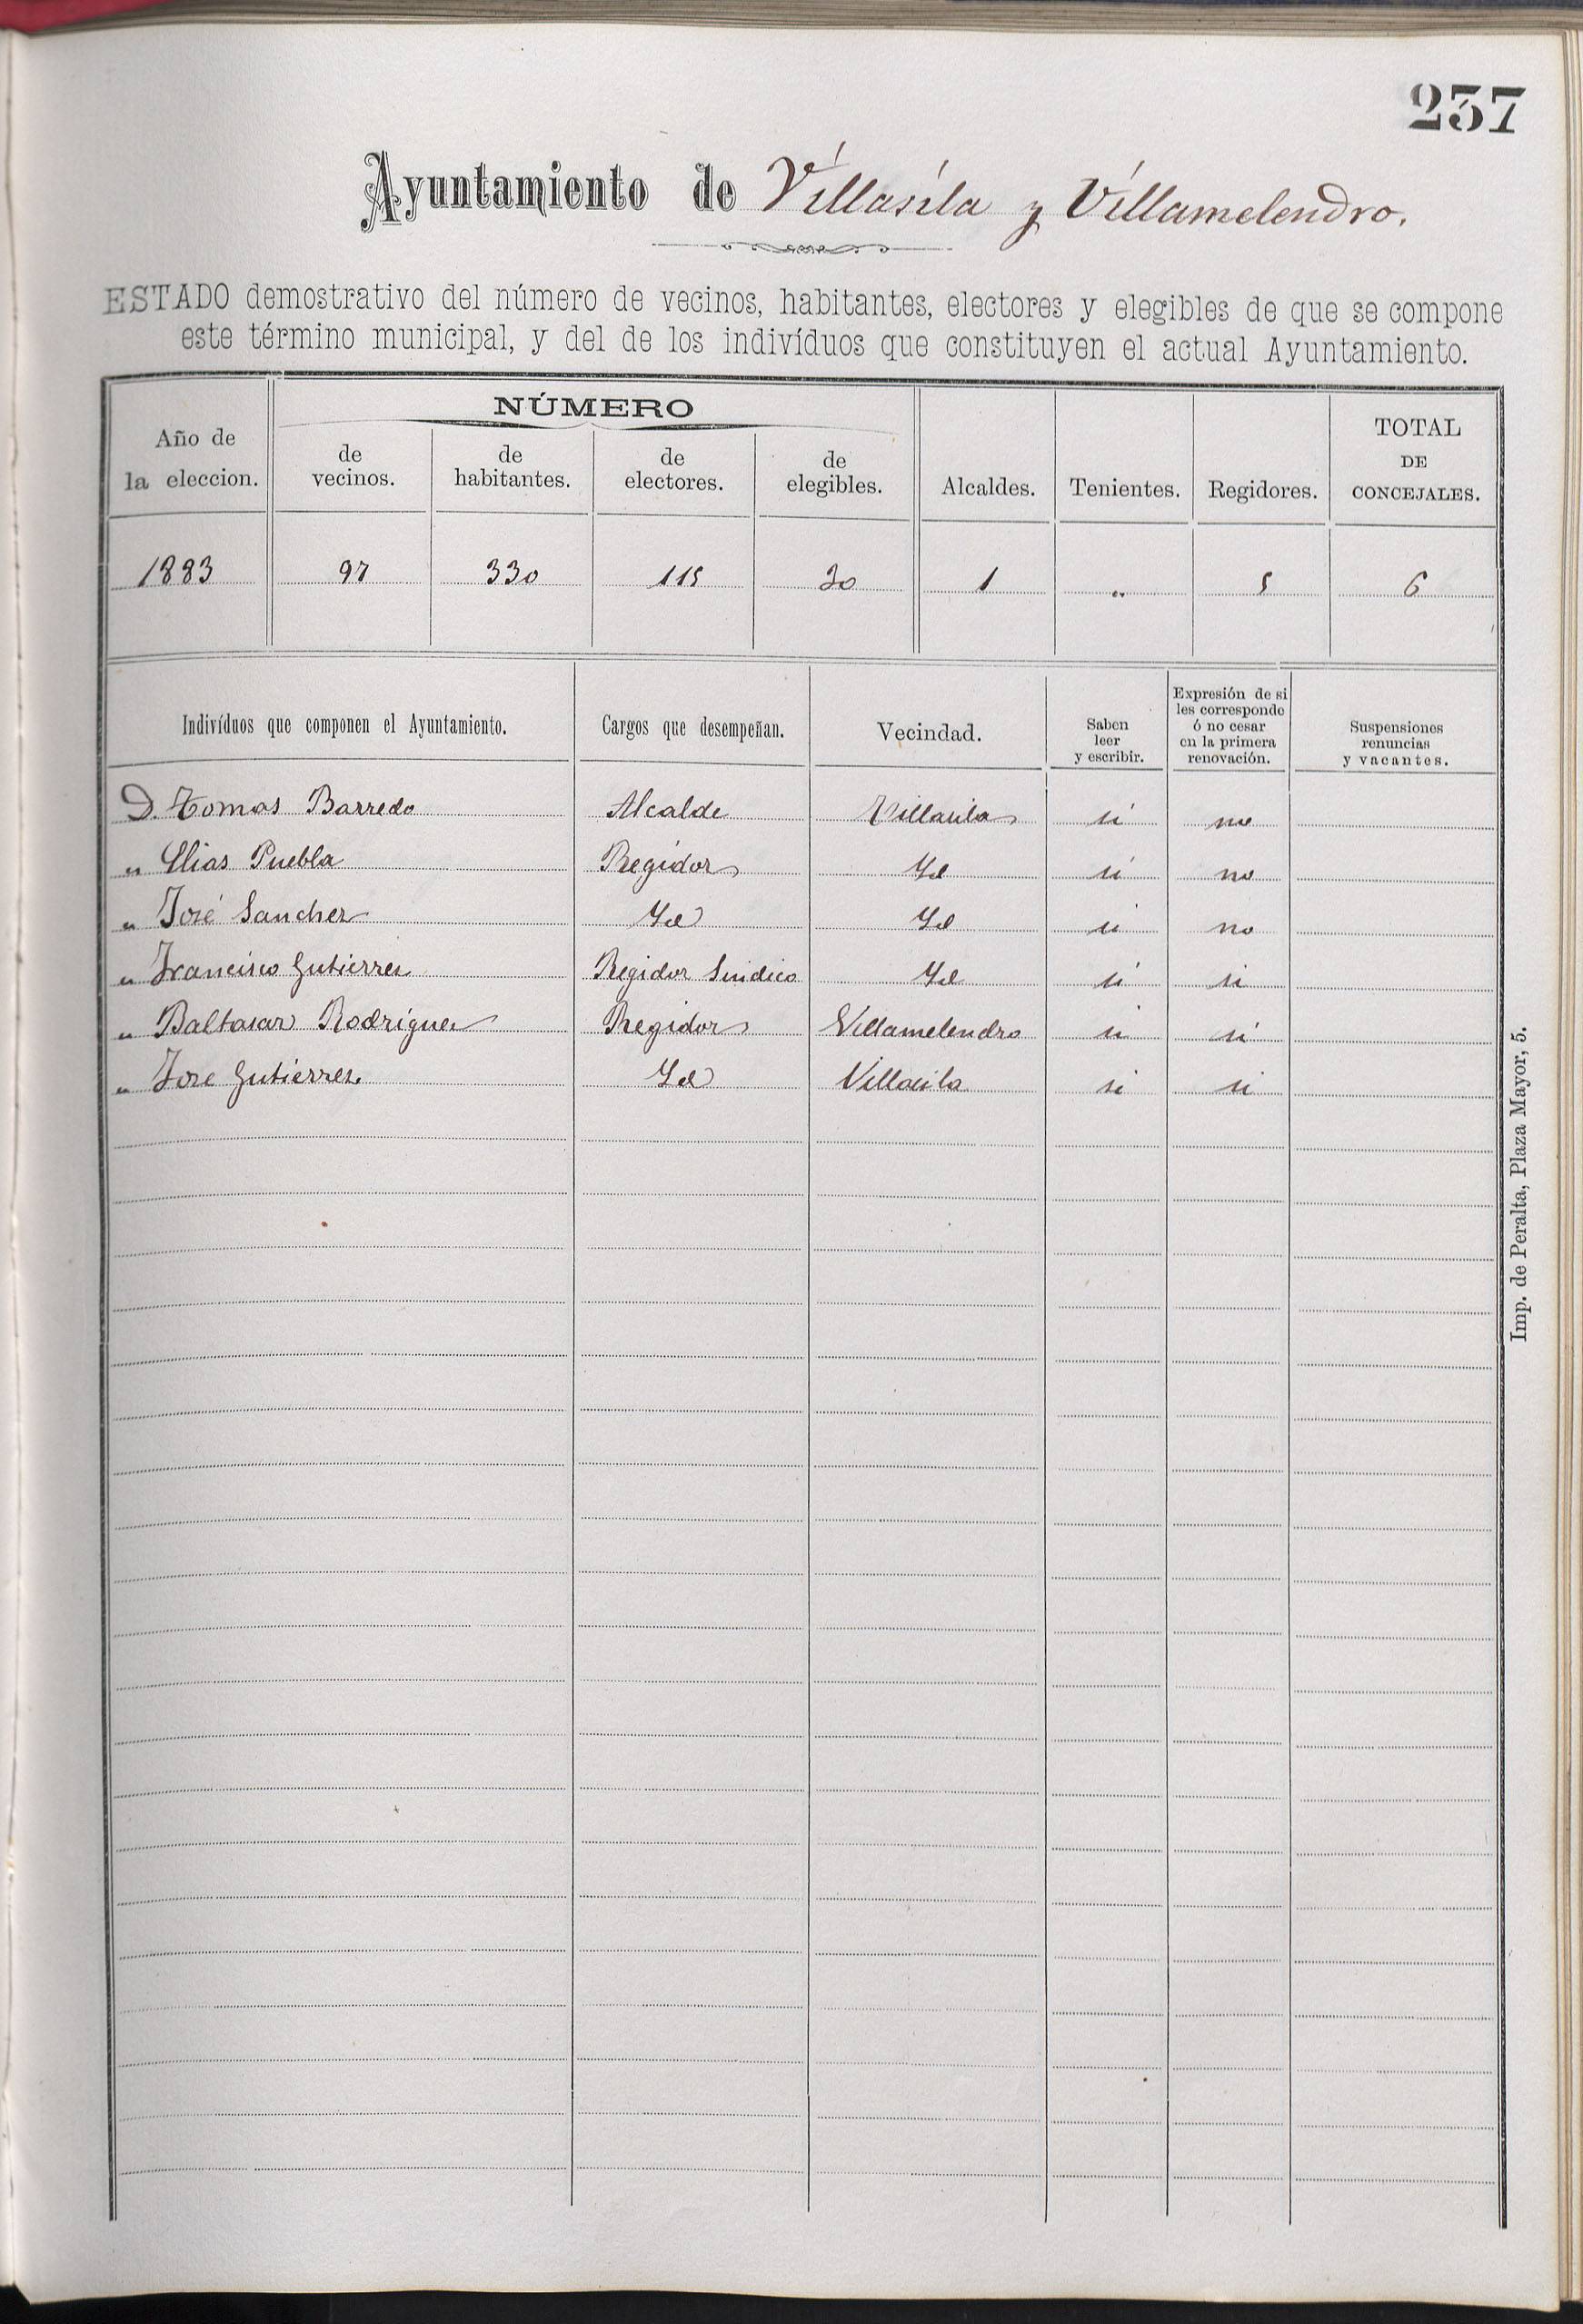 237
Ayuntamiento de Villasila y Villamelendro.
ESTADO demostrativo del número de vecinos, habitantes, electores y elegibles de que se compone
este término municipal, y del de los indivíduos que constituyen el actual Ayuntamiento.
Año de la eleccion. NÚMERO de vecinos. de habitantes. de electores. de elegibles. Alcaldes. Tenientes. Regidores. TOTAL DE CONCEJALES.
1883 97 330 115 30 1 „ 5 6
Indivíduos que componen el Ayuntamiento. Cargos que desempeñan. Vecindad. Saben leer y escribir. Expresión de si les corresponde ó no cesar en la primera renovación. Suspensiones renuncias y vacantes.
D. Tomas Barredo Alcalde Villasila si no
„ Elias Puebla Regidor Id si no
„ José Sanchez Id Id si no
„ Francisco Gutierrez Regidor Sindico Id si si
„ Baltasar Rodriguez Regidor Villamelendro si si
„ Jose Gutierrez. Id Villasila si si
Imp. de Peralta, Plaza Mayor, 5.